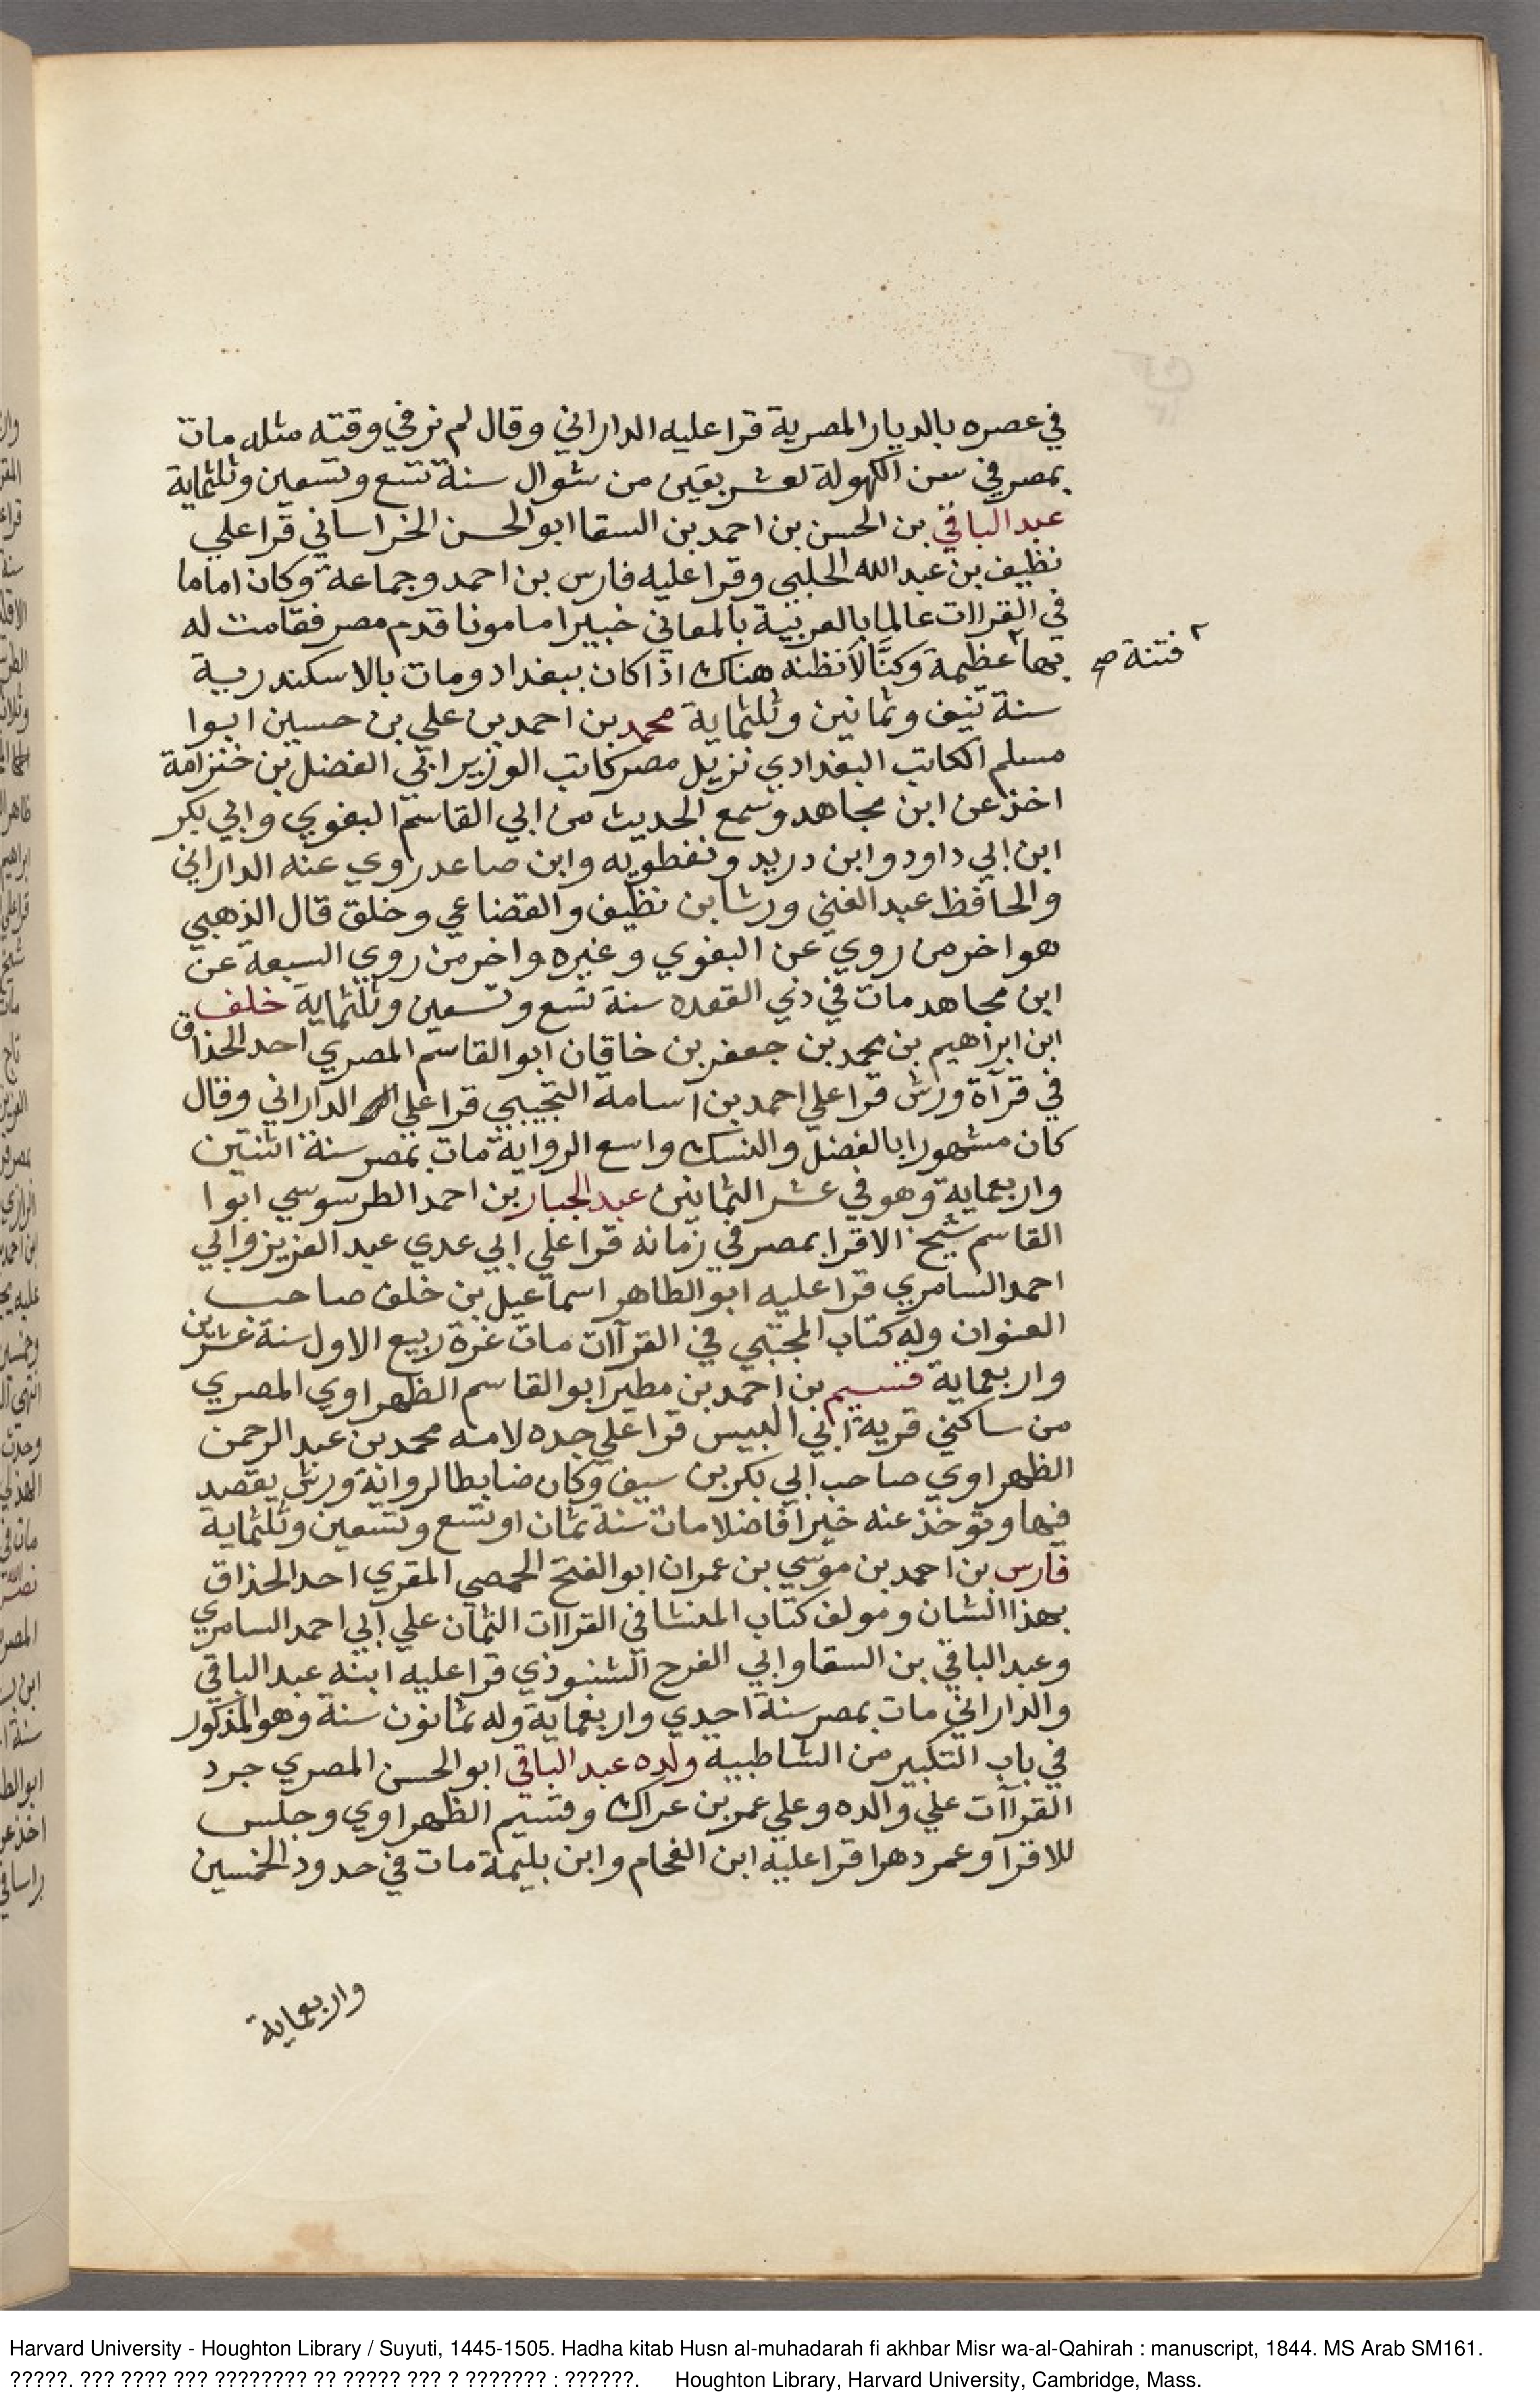 في عصره بالديار المصرية قرا عليه الداراني وقال لم نر في وقته مثله مات
بمصر في سن الكهولة لعشر بقين من شوال سنة تسع وتسعين وثلثماية
عبد الباقي بن الحسن بن احمد بن السقا ابو الحسن الخراساني قرا علي
نظيف بن عبد الله الحلبي وقرا عليه فارس بن احمد وجماعة وكان اماما
في القراات عالما بالعربية بالمعاني خبيرا مامونا قدم مصر فقامت له
٢ فتنة صح
بها ٢ عظيمة وكنا لا نظنه هناك اذا كان ببغداد ومات بالاسكندرية
سنة نيف وثمانين وثلثماية محمد بن احمد بن علي بن حسين ابوا
مسلم الكاتب البغدادي نزيل مصر كاتب الوزير ابي الفضل بن خنزامة
اخذ عن ابن مجاهد وسمع الحديث من ابي القاسم البغوي وابي بكر
ابن ابي داود وابن دريد ونفطويه وابن صاعد روي عنه الداراني
والحافظ عبد الغني ورشا بن نظيف والقضاعي وخلق قال الذهبي
هو اخر من روي عن البغوي وغيره واخر من روي السبعة عن
ابن مجاهد مات في ذي القعده سنة تسع وتسعين وثلثماية خلف
ابن ابراهيم بن محمد بن جعفر بن خاقان ابو القاسم المصري احد الحذاق
في قرآة ورش قرا علي احمد بن اسامة التجيبي قرا علي الداراني وقال
كان مشهورا بالفضل والنسك واسع الرواية مات بمصر سنة اثنتين
واربعماية وهو في عشر الثمانين عبد الجبار بن احمد الطرسوسي ابوا
القاسم شيخ الاقرا بمصر في زمانه قرا علي ابي عدي عبد العزيز وابي
احمد السامري قرا عليه ابو الطاهر اسماعيل بن خلف صاحب
العنوان وله كتاب المجتبي في القرآات مات غرة ربيع الاول سنة عشرين
واربعماية قسيم بن احمد بن مطير ابو القاسم الظهراوي المصري
من ساكني قرية ابي البيس قرا علي جده لامه محمد بن عبد الرحمن
الظهراوي صاحب ابي بكر بن سيف وكان ضابطا لرواية ورش يقصد
فيها وتوخذ عنه خيرا فاضلا مات سنة ثمان او تسع وتسعين وثلثماية
فارس بن احمد بن موسي بن عمران ابو الفتح الحمصي المقري احد الحذاق
بهذا الشان ومولف كتاب المنشا في القراات الثمان علي ابي احمد السامري
وعبد الباقي بن السقا وابي الفرج الشنبوذي قرا عليه ابنه عبد الباقي
والداراني مات بمصر سنة احدي واربعماية وله ثمانون سنة وهو المذكور
في باب التكبير من الشاطبية ولده عبد الباقي ابو الحسن المصري جرد
القرآات علي والده وعلي عمر بن عراك وقسيم الظهراوي وجلس
للاقرا وعمر دهرا قرا عليه ابن الفحام وابن بليمة مات في حدود الخمسين
واربعماية
Harvard University - Houghton Library / Suyuti, 1445-1505. Hadha kitab Husn al-muhadarah fi akhbar Misr wa-al-Qahirah : manuscript, 1844. MS Arab SM161.
?????. ??? ???? ??? ???????? ?? ????? ??? ? ??????? : ??????. Houghton Library, Harvard University, Cambridge, Mass.